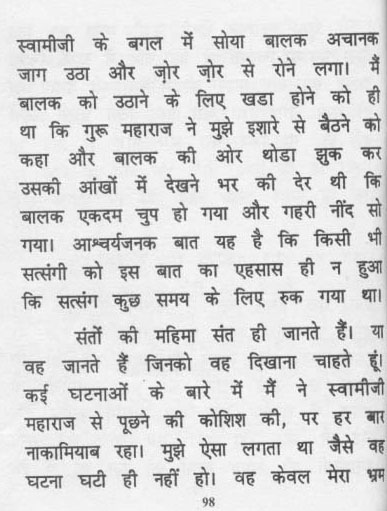 स्वामीजी के बगल में सोया बालक अचानक
जाग उठा और ज़ोर ज़ोर से रोने लगा। मैं
बालक को उठाने के लिए खडा होने को ही
था कि गुरू महाराज ने मुझे इशारे से बैठने को
कहा और बालक की ओर थोडा झुक कर
उसकी आंखों में देखने भर की देर थी कि
बालक एकदम चुप हो गया और गहरी नींद सो
गया। आश्चर्यजनक बात यह है कि किसी भी
सत्संगी को इस बात का एहसास ही न हुआ
कि सत्संग कुछ समय के लिए रुक गया था।
संतों की महिमा संत ही जानते हैं। या
वह जानते हैं जिनको वह दिखाना चाहते हूं।
कई घटनाओं के बारे में मैं ने स्वामीजी
महाराज से पूछने की कोशिश की, पर हर बार
नाकामियाब रहा। मुझे ऐसा लगता था जैसे वह
घटना घटी ही नहीं हो। वह केवल मेरा भ्रम
98